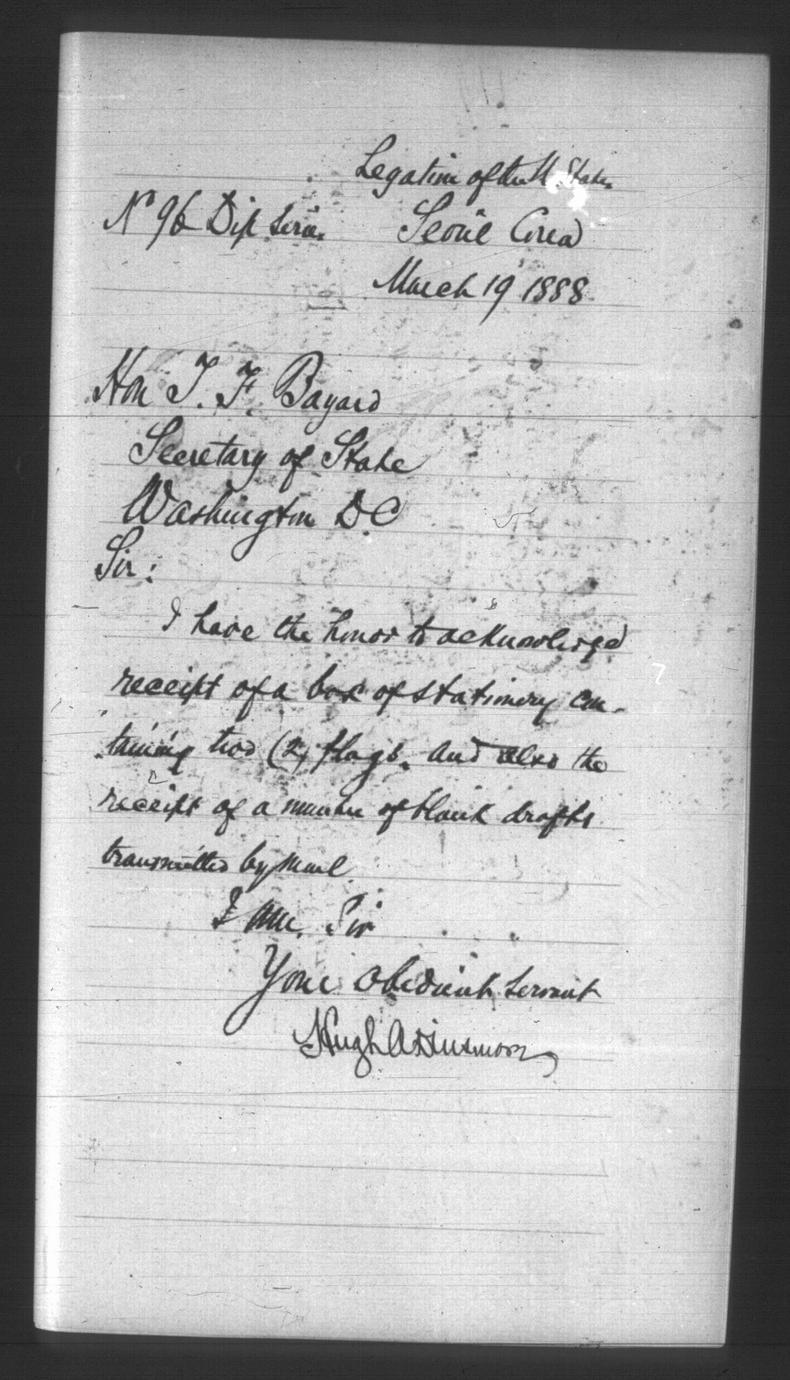 Legation of the U. States
No 96 Dip Series
Seoul Corea
March 19 1888
Hon T. F. Bayard
Secretary of State
Washington D.C
Sir:
I have the honor to acknowledge
receipt of a box of stationery con-
taining two (2) flags. and also the
receipt of a number of blank drafts
transmitted by mail
I am, Sir
Your obedient servant
Hugh A Dinsmore